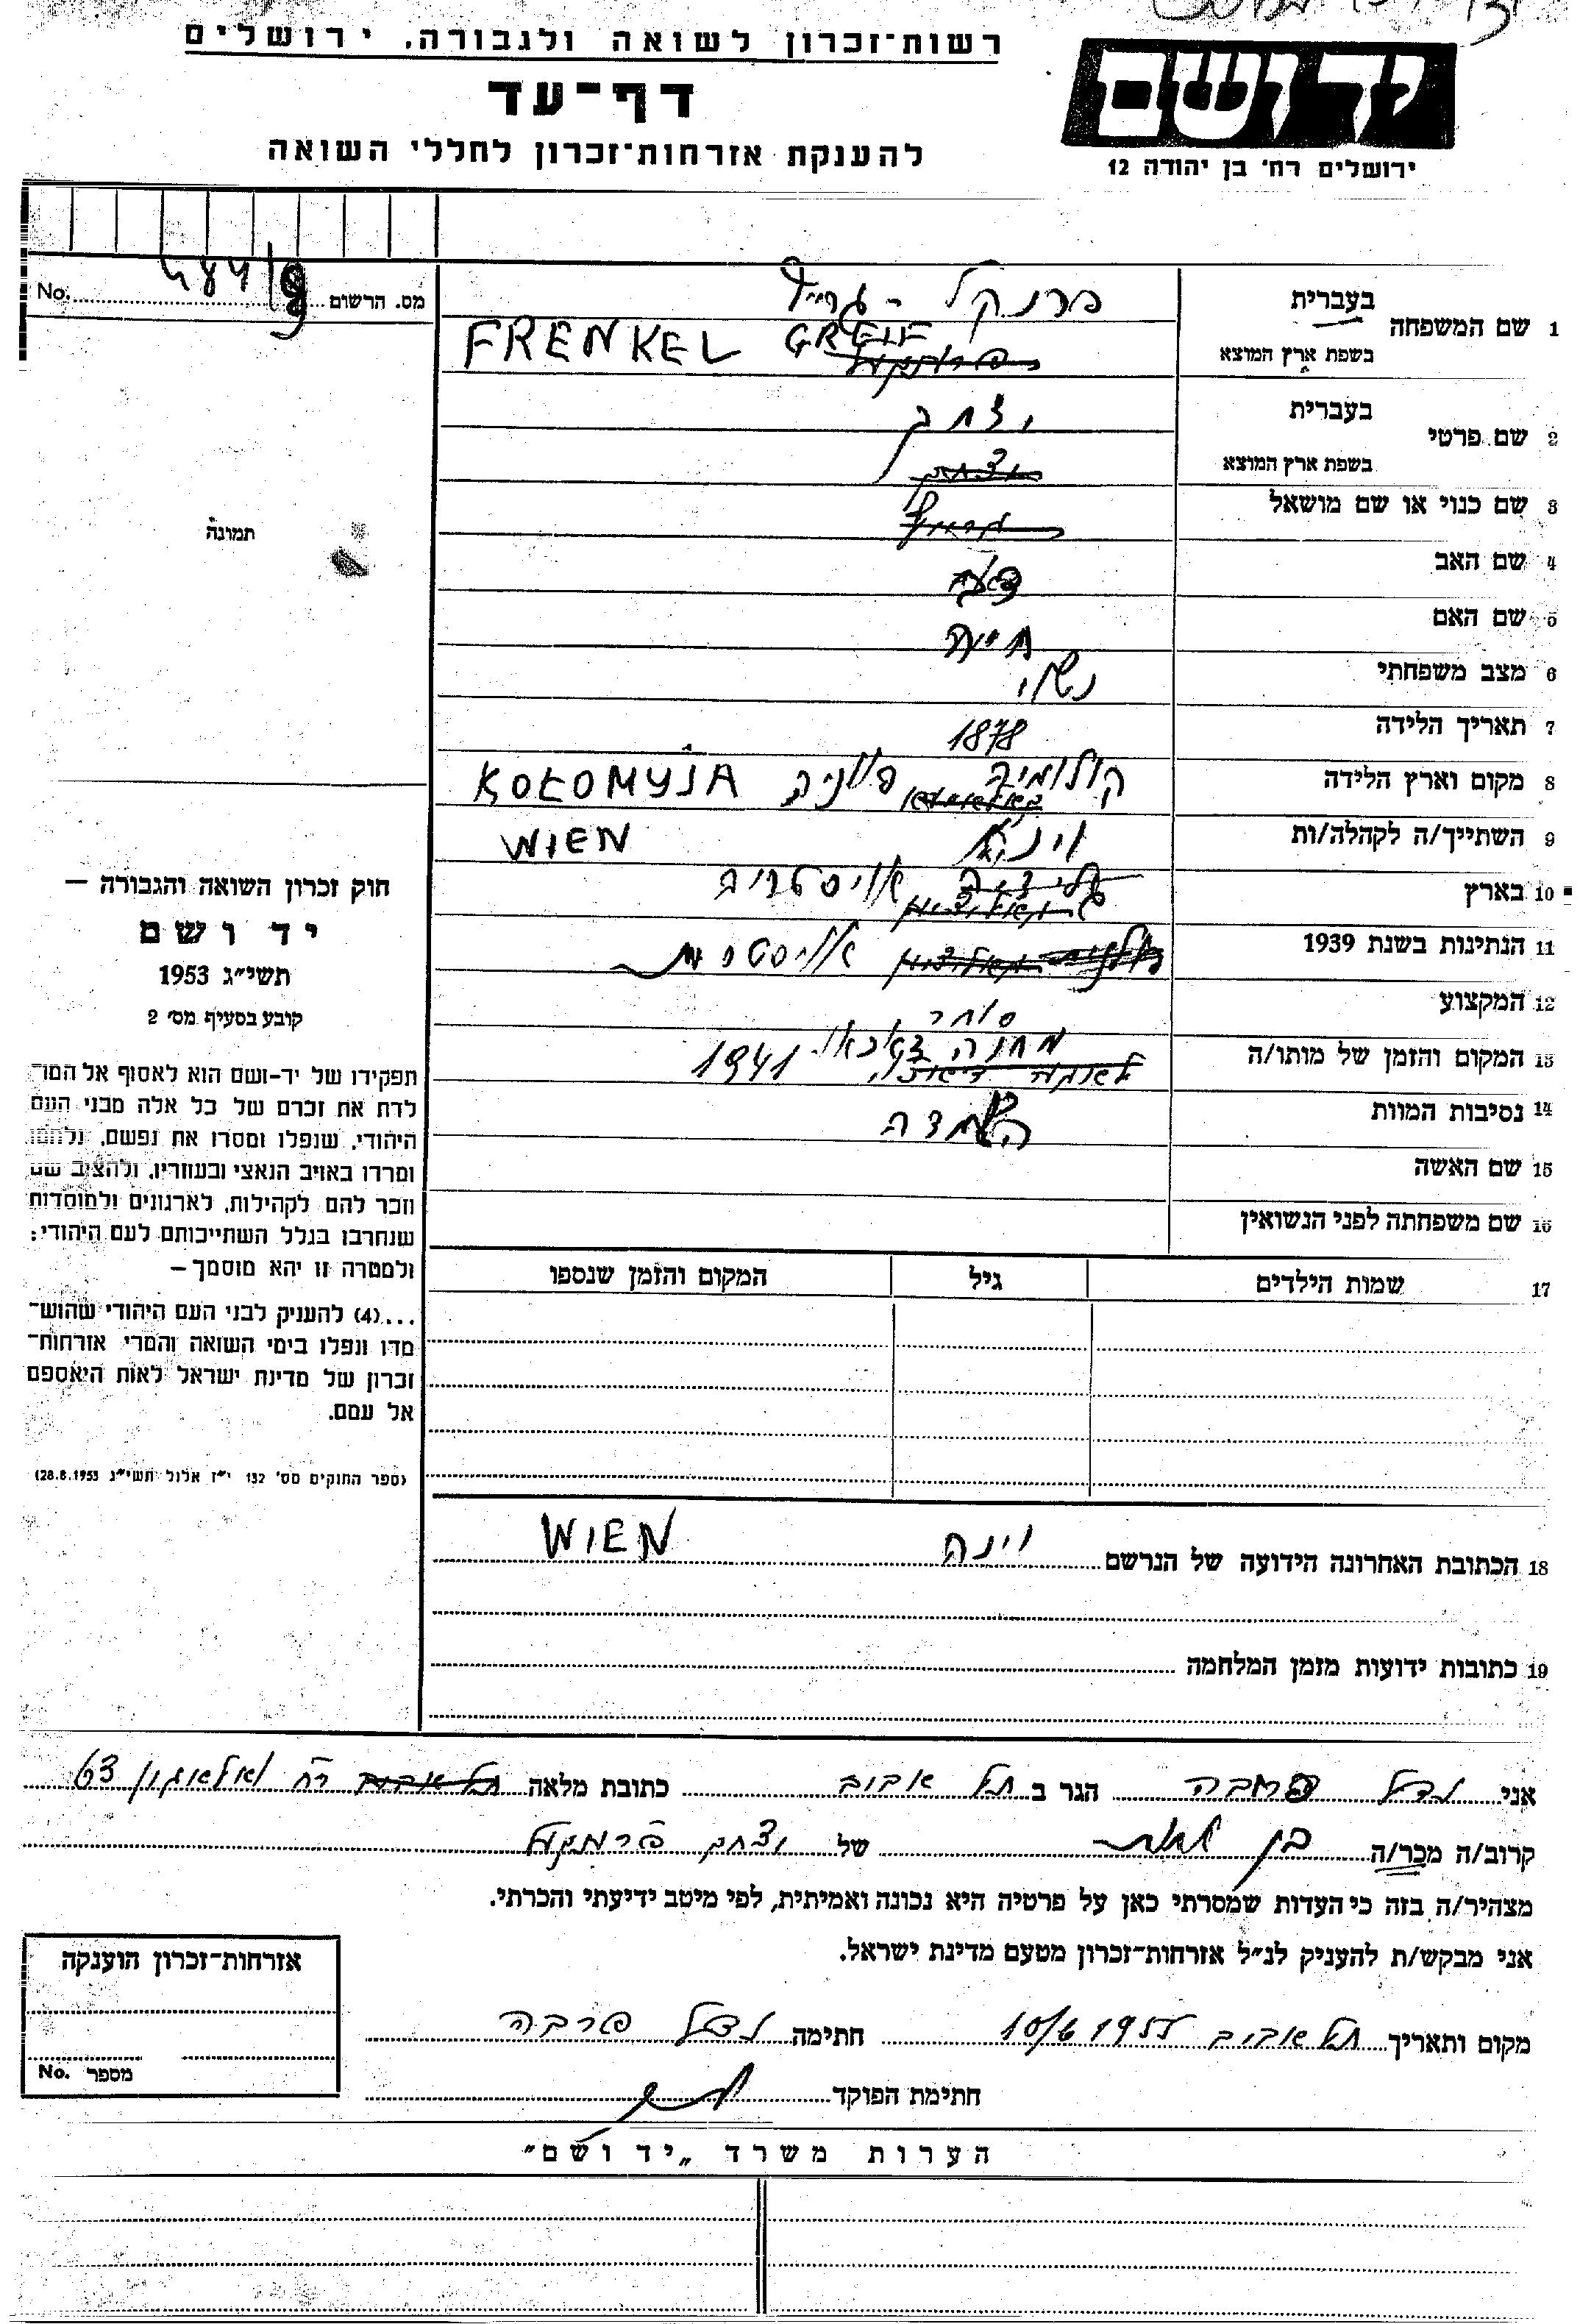 רשות־זכרון לשואה ולגבורה, ירושלים
יד ושם
דף־עד
להענקת אזרחות־זכרון לחללי השואה
ירושלים רח' בן יהודה 12
No. מס. הרשום
1 שם המשפחה
בעברית פרנקל - גרייף
בשפת ארץ המוצא FRENKEL GREIF
2 שם פרטי
בעברית יצחק
בשפת ארץ המוצא יצחק
3 שם כנוי או שם מושאל
4 שם האב
5 שם האם חיה
6 מצב משפחתי נשוי
7 תאריך הלידה 1878
8 מקום וארץ הלידה קולומיה פולניה KOŁOMYJA
9 השתייך/ה לקהלה/ות וינה WIEN
10 בארץ אויסטריה
11 הנתינות בשנת 1939
12 המקצוע סוחר
13 המקום והזמן של מותו/ה מחנה דכאו 1941
14 נסיבות המוות השמדה
15 שם האשה
16 שם משפחתה לפני הנשואין
17 שמות הילדים גיל המקום והזמן שנספו
18 הכתובת האחרונה הידועה של הנרשם וינה WIEN
19 כתובות ידועות מזמן המלחמה
תמונה
חוק זכרון השואה והגבורה —
יד ושם
תשי״ג 1953
קובע בסעיף מס' 2
תפקידו של יד-ושם הוא לאסוף אל המו־
לדת את זכרם של כל אלה מבני העם
היהודי, שנפלו ומסרו את נפשם, נלחמו
ומרדו באויב הנאצי ובעוזריו, ולהציב שם
וזכר להם לקהילות, לארגונים ולמוסדות
שנחרבו בגלל השתייכותם לעם היהודי:
ולמטרה זו יהא מוסמך —
...(4) להעניק לבני העם היהודי שהוש־
מדו ונפלו בימי השואה והמרי אזרחות־
זכרון של מדינת ישראל לאות היאספם
אל עמם.
(ספר החוקים מס' 132 י״ז אלול תשי״ג 28.8.1953)
אני הגר ב תל אביב כתובת מלאה תל אביב רח 63
קרוב/ה מכר/ה בן של יצחק פרנקל
מצהיר/ה בזה כי העדות שמסרתי כאן על פרטיה היא נכונה ואמיתית, לפי מיטב ידיעתי והכרתי.
אני מבקש/ת להעניק לנ״ל אזרחות־זכרון מטעם מדינת ישראל.
מקום ותאריך תל אביב 10/6 1955 חתימה
חתימת הפוקד
אזרחות־זכרון הוענקה
No. מספר
הערות משרד „יד ושם״